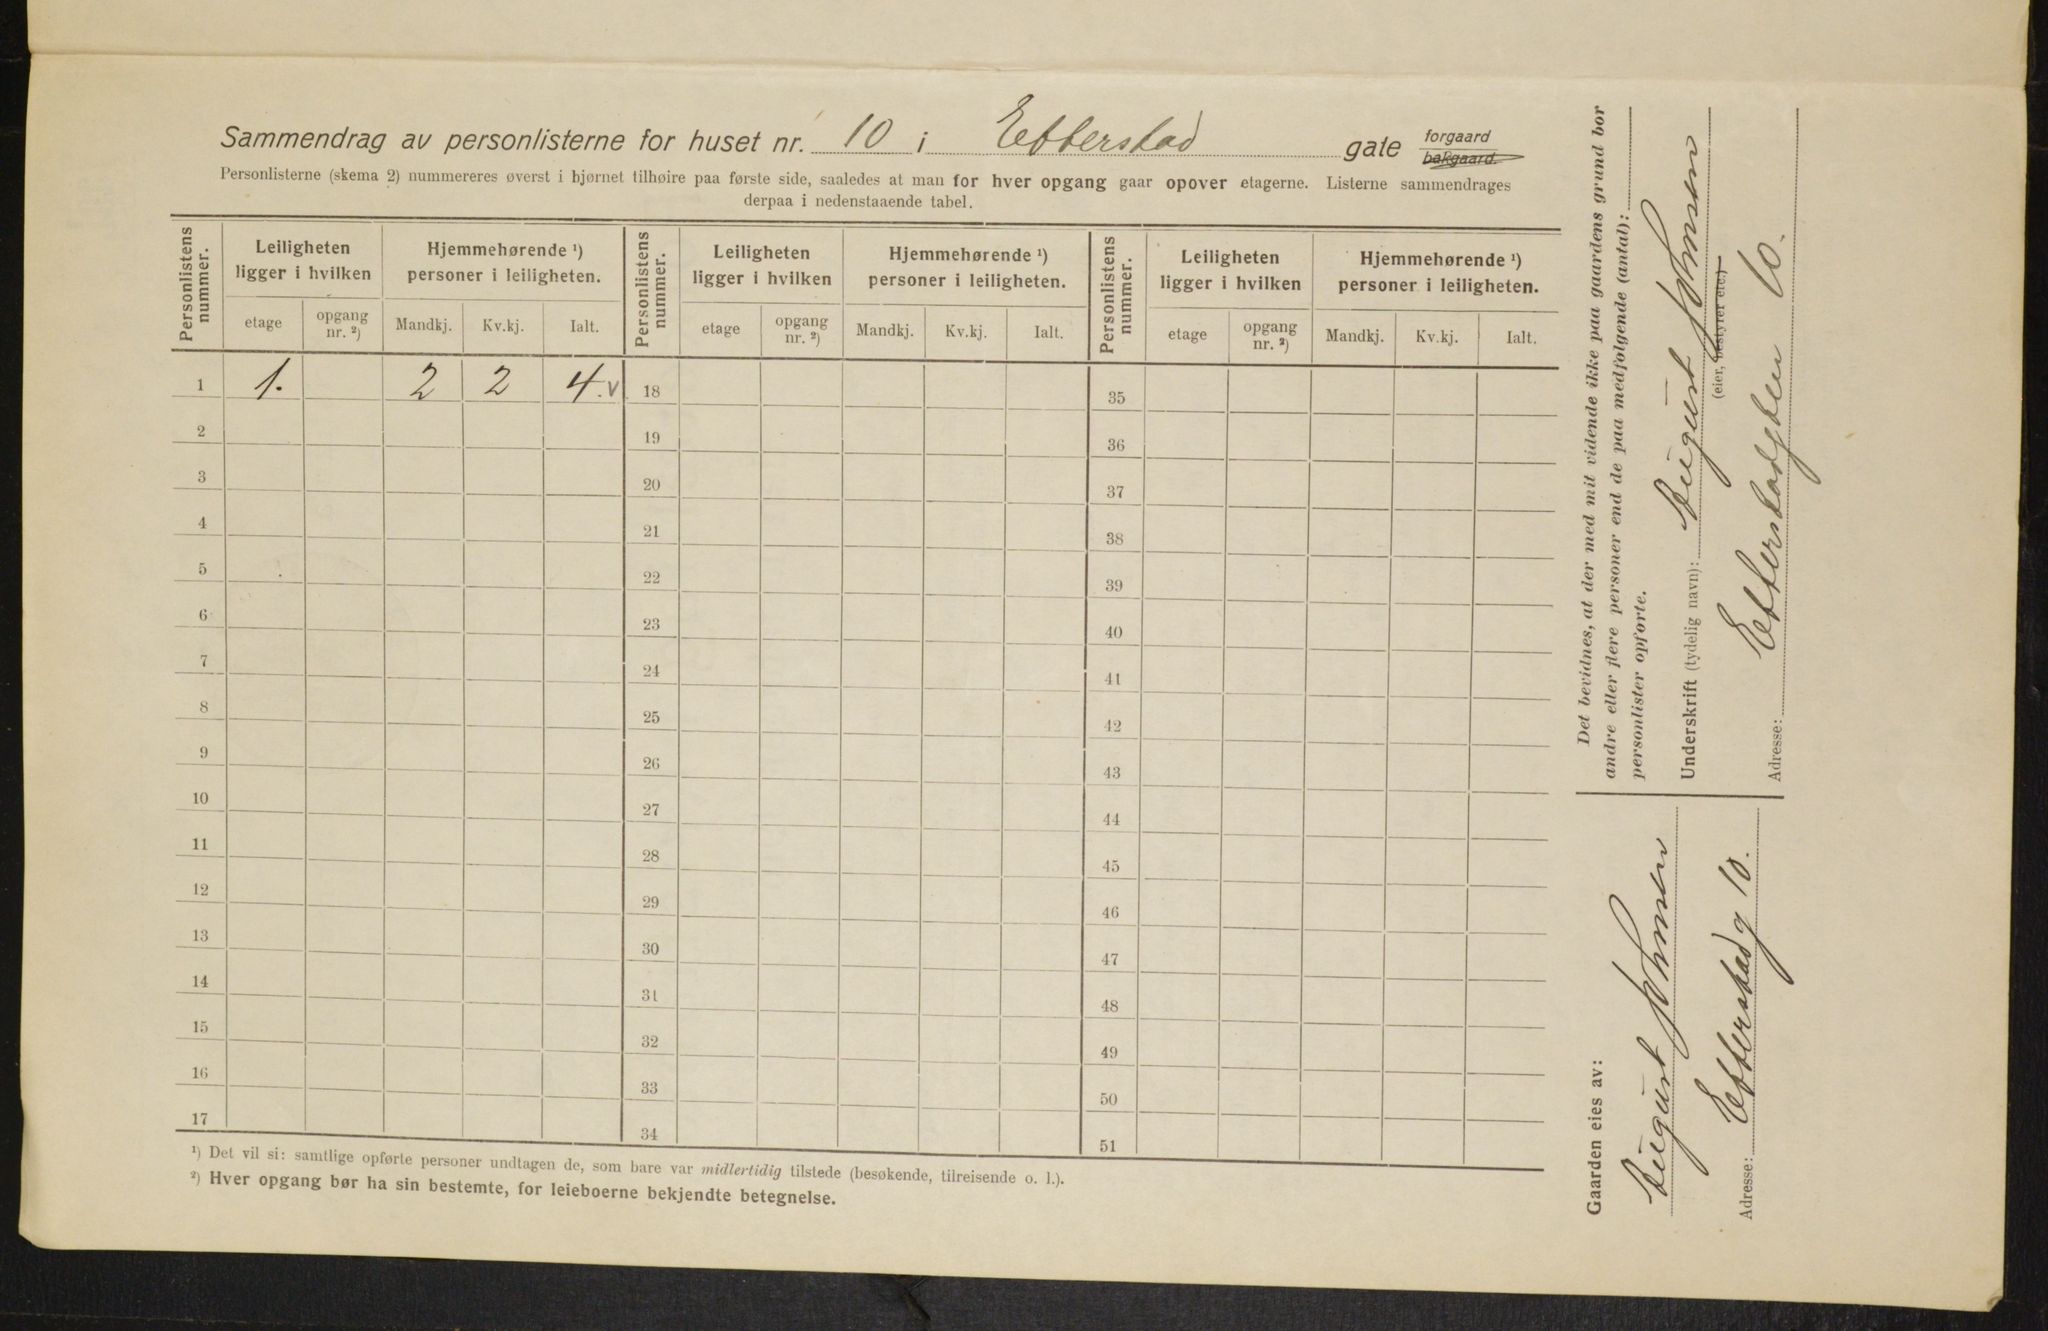 Sammendrag av personlisterne for huset nr. 10 i Etterstad gate forgaard bakgaard.
Personlisterne (skema 2) nummereres øverst i hjørnet tilhøire paa første side, saaledes at man for hver opgang gaar opover etagerne. Listerne sammendrages
derpaa i nedenstaaende tabel.
Personlistens nummer. Leiligheten ligger i hvilken Hjemmehørende ¹) personer i leiligheten. Personlistens nummer. Leiligheten ligger i hvilken Hjemmehørende ¹) personer i leiligheten. Personlistens nummer. Leiligheten ligger i hvilken Hjemmehørende ¹) personer i leiligheten.
etage opgang nr. ²) Mandkj. Kv.kj. Ialt. etage opgang nr. ²) Mandkj. Kv.kj. Ialt. etage opgang nr. ²) Mandkj. Kv.kj. Ialt.
1 1. 2 2 4. v 18 35
2 19 36
3 20 37
4 21 38
5 22 39
6 23 40
7 24 41
8 25 42
9 26 43
10 27 44
11 28 45
12 29 46
13 30 47
14 31 48
15 32 49
16 33 50
17 34 51
¹) Det vil si: samtlige opførte personer undtagen de, som bare var midlertidig tilstede (besøkende, tilreisende o. l.).
²) Hver opgang bør ha sin bestemte, for leieboerne bekjendte betegnelse.
Det bevidnes, at der med mit vidende ikke paa gaardens grund bor
andre eller flere personer end de paa medfølgende (antal):
personlister opførte.
Underskrift (tydelig navn): August Johnsen
(eier, bestyrer etc.)
Adresse: Etterstadgten 10.
Gaarden eies av:
August Johnsen
Adresse: Etterstadg 10.